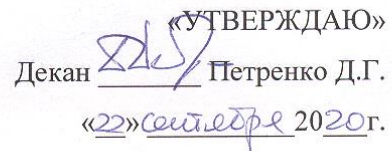 «УТВЕРЖДАЮ»
Декан Петренко Д.Г.
«22» сентября 2020г.